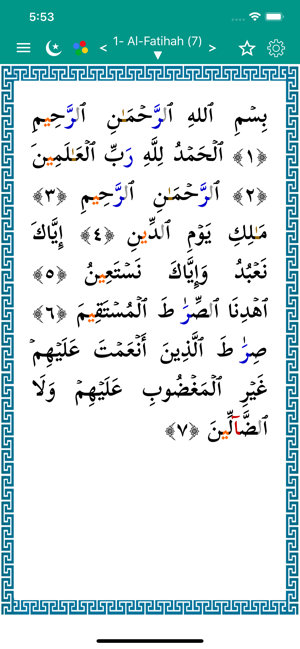 5:53
1- Al-Fatihah (7)
بِسۡمِ ٱللهِ ٱلرَّحۡمَـٰنِ ٱلرَّحِيمِ
﴿١﴾ ٱلۡحَمۡدُ لِلَّهِ رَبِّ ٱلۡعَـٰلَمِينَ
﴿٢﴾ ٱلرَّحۡمَـٰنِ ٱلرَّحِيمِ ﴿٣﴾
مَـٰلِكِ يَوۡمِ ٱلدِّينِ ﴿٤﴾ إِيَّاكَ
نَعۡبُدُ وَإِيَّاكَ نَسۡتَعِينُ ﴿٥﴾
ٱهۡدِنَا ٱلصِّرَٰطَ ٱلۡمُسۡتَقِيمَ ﴿٦﴾
صِرَٰطَ ٱلَّذِينَ أَنۡعَمۡتَ عَلَيۡهِمۡ
غَيۡرِ ٱلۡمَغۡضُوبِ عَلَيۡهِمۡ وَلَا
ٱلضَّآلِّينَ ﴿٧﴾